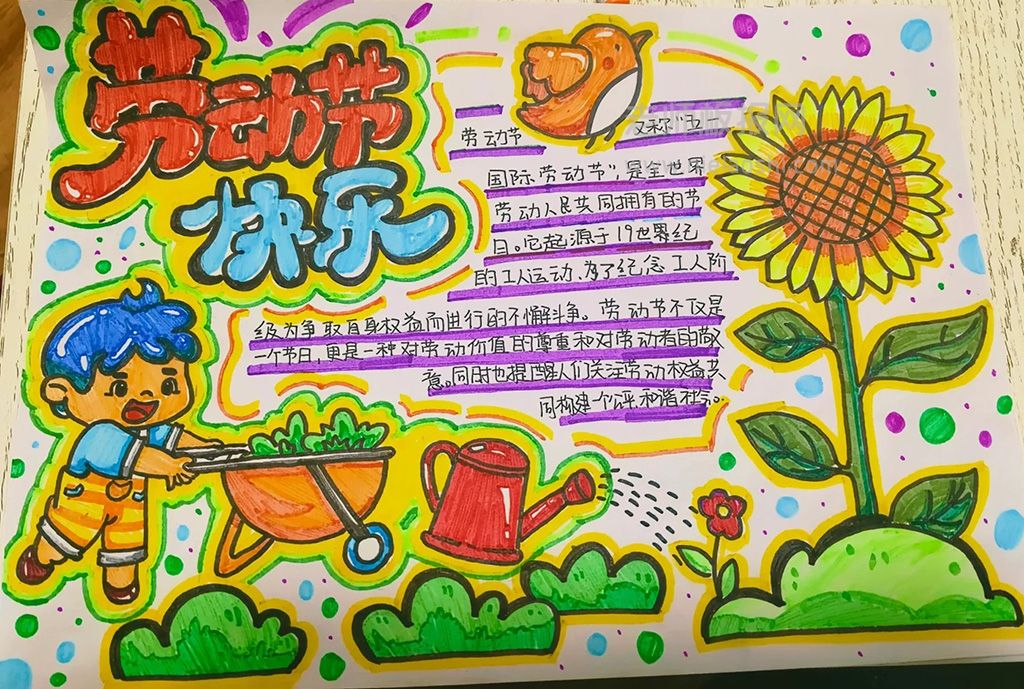 劳动节
快乐
劳动节 又称"五一
国际劳动节",是全世界
劳动人民共同拥有的节
日。它起源于19世界纪
的工人运动,为了纪念工人阶
级为争取自身权益而进行的不懈斗争。劳动节不仅是
一个节日,更是一种对劳动价值的尊重和对劳动者的敬
意。同时也提醒人们关注劳动权益共
同构建一个公平和谐社会。